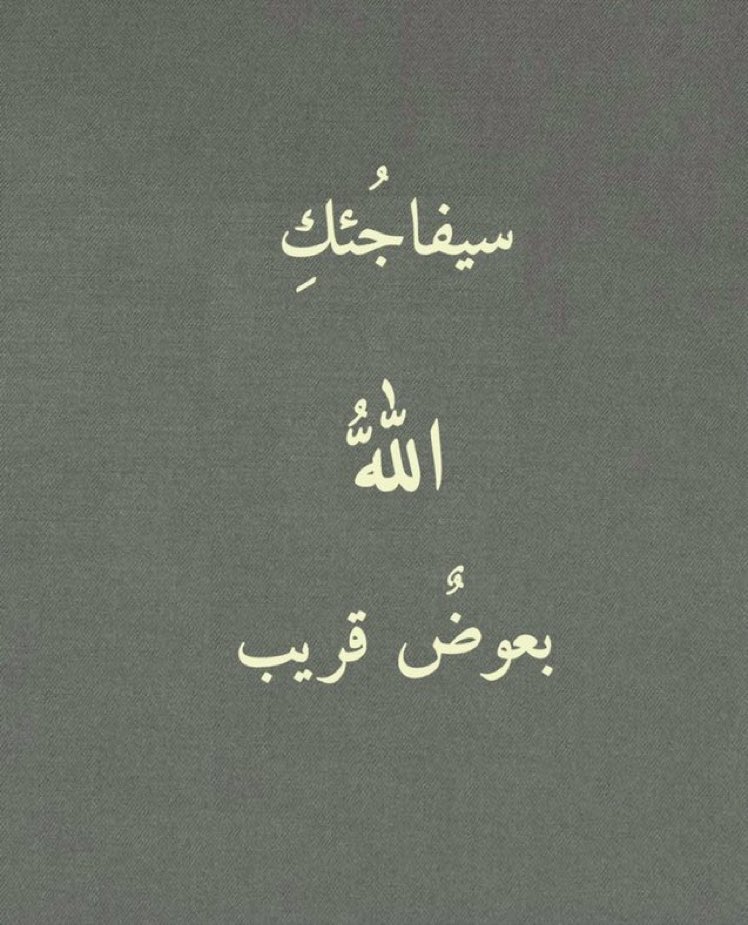 سيفاجُئكِ
اللّٰهُ
بعوضٌ قريب